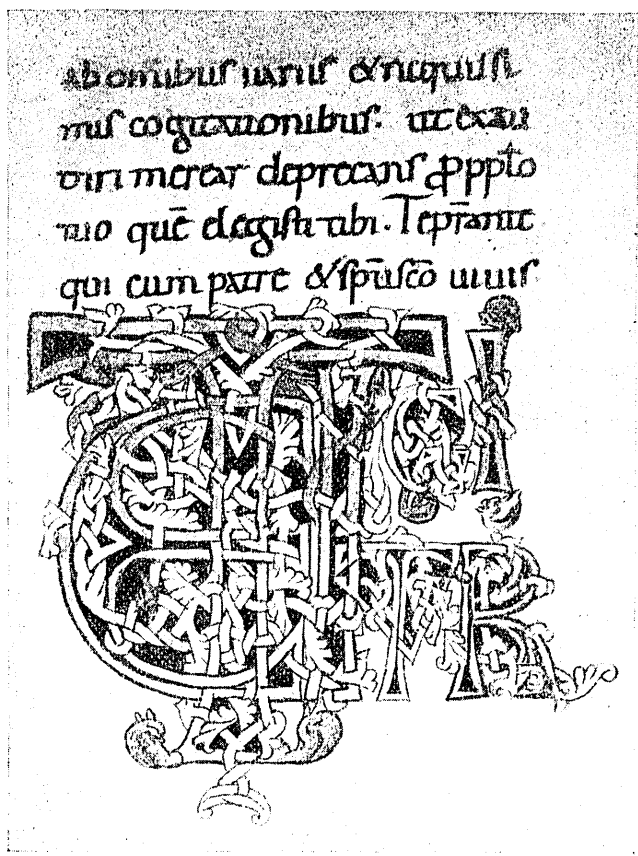 ab om̅ibus uanis & nequissi
mis cogitationibus. ut exau
diri merear deprecans ꝓ ppl̅o
tuo que̅ elegisti tibi. Te pr̅ante
qui cum patre & sp̅u sc̅o uiuis
TE IGI
TUR